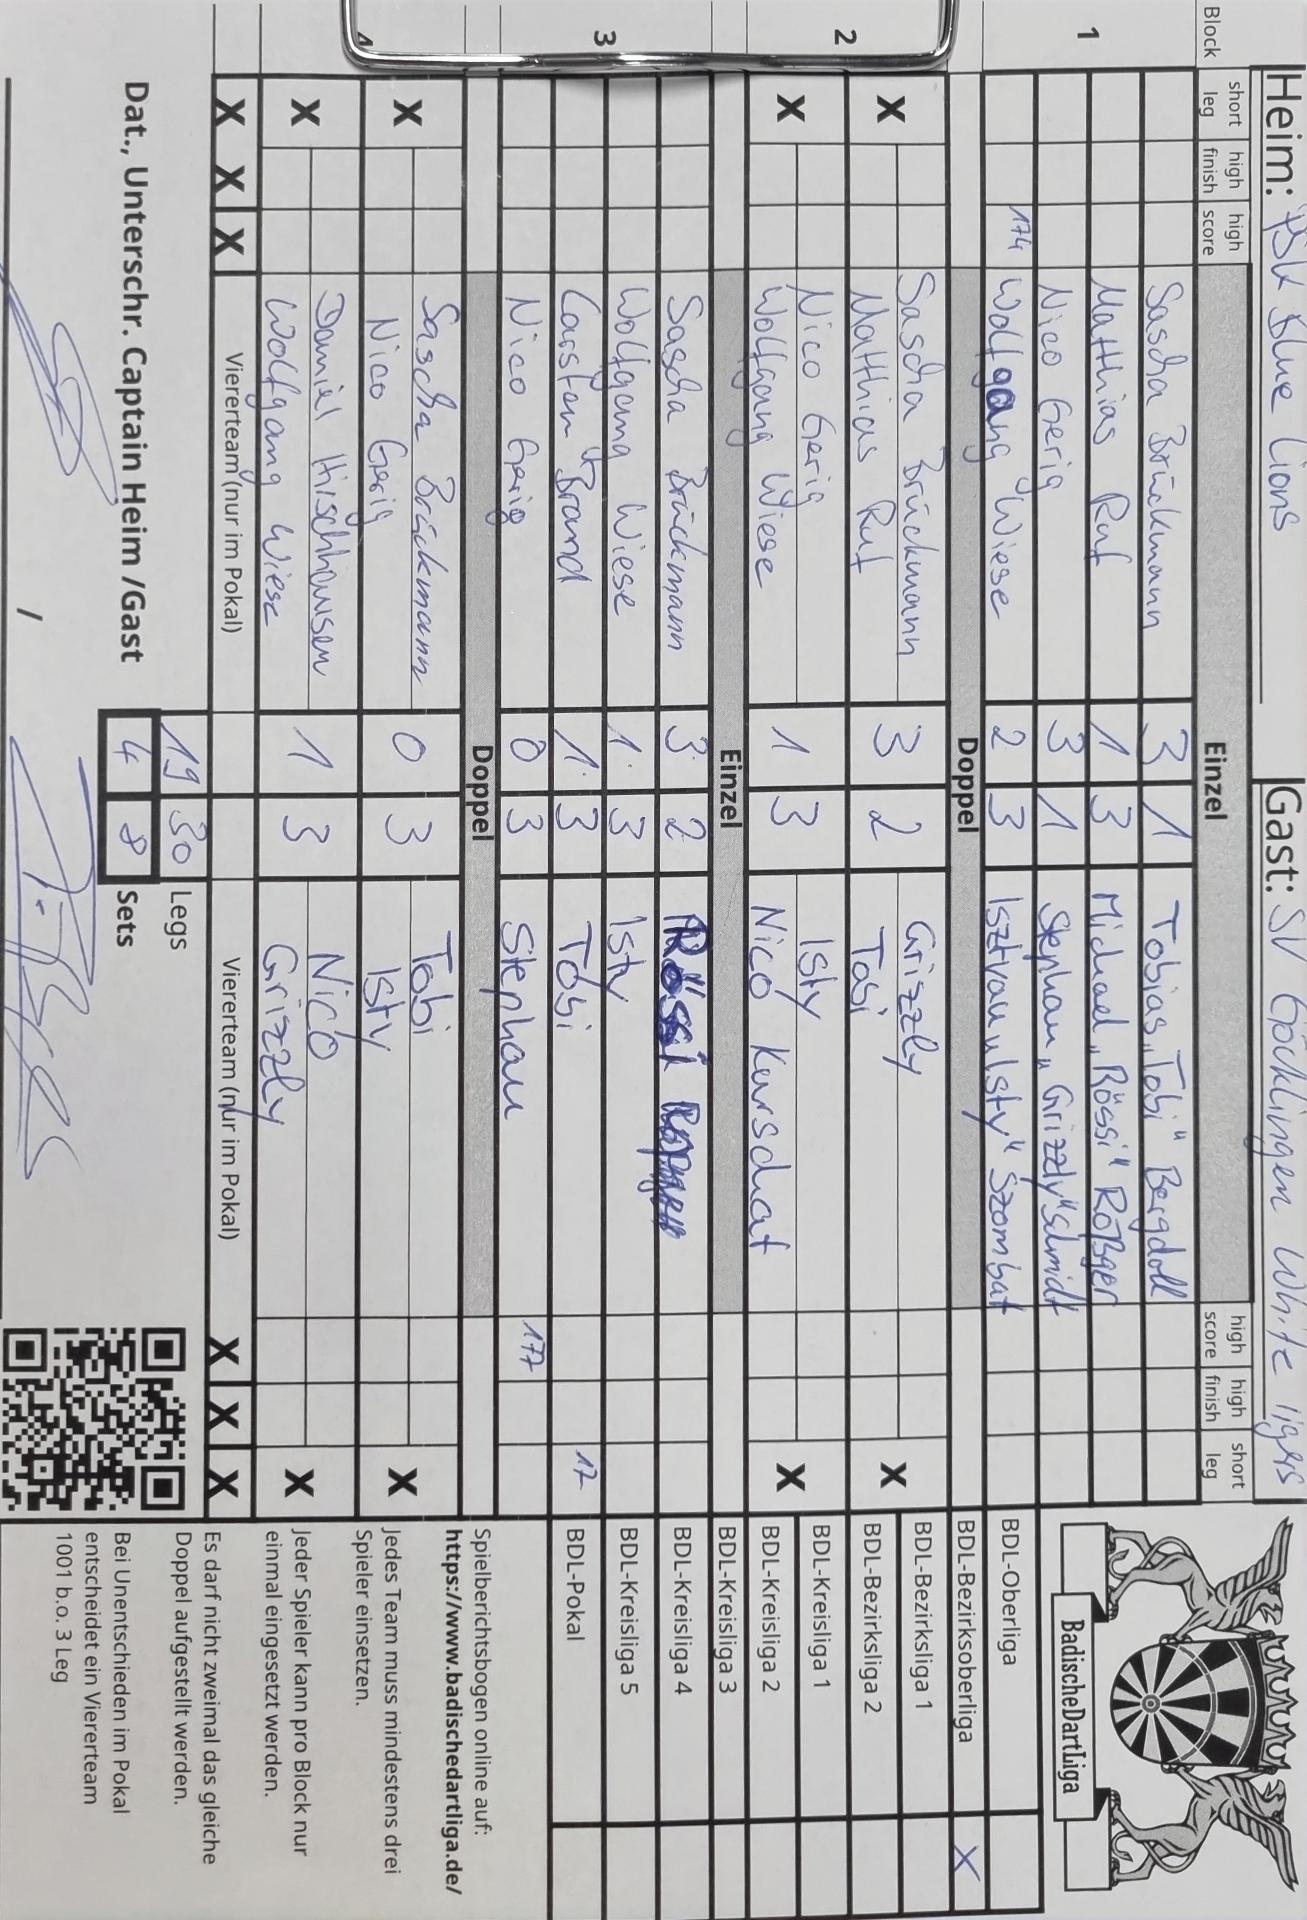 Heim: PSK Blue Lions Gast: SV Göcklingen White Tigers
Block short leg high finish high score Einzel high score high finish short leg
1
Sascha Brückmann 3 1 Tobias "Tobi" Bergdoll
Matthias Ruf 1 3 Michael "Rössi" Rößger
Nico Gerig 3 1 Stephan "Grizzly" Schmidt
174 Wolfgang Wiese 2 3 Isztvan "Isty" Szombat
Doppel
2
X Sascha Brückmann 3 2 Grizzly X
Matthias Ruf Tobi
X Nico Gerig 1 3 Isty X
Wolfgang Wiese Nico Kurschat
Einzel
3
Sascha Brückmann 3 2 Rössi
Wolfgang Wiese 1 3 Isty
Carsten Brand 1 3 Tobi 17
Nico Gerig 0 3 Stephan 177
Doppel
4
X Sascha Brückmann 0 3 Tobi X
Nico Gerig Isty
X Daniel Hirschhausen 1 3 Nico X
Wolfgang Wiese Grizzly
X X X Viererteam (nur im Pokal) Viererteam (nur im Pokal) X X X
19 30 Legs
Dat., Unterschr. Captain Heim /Gast 4 8 Sets
/
BadischeDartLiga
BDL-Oberliga
BDL-Bezirksoberliga X
BDL-Bezirksliga 1
BDL-Bezirksliga 2
BDL-Kreisliga 1
BDL-Kreisliga 2
BDL-Kreisliga 3
BDL-Kreisliga 4
BDL-Kreisliga 5
BDL-Pokal
Spielberichtsbogen online auf:
https://www.badischedartliga.de/
Jedes Team muss mindestens drei
Spieler einsetzen.
Jeder Spieler kann pro Block nur
einmal eingesetzt werden.
Es darf nicht zweimal das gleiche
Doppel aufgestellt werden.
Bei Unentschieden im Pokal
entscheidet ein Viererteam
1001 b.o. 3 Leg